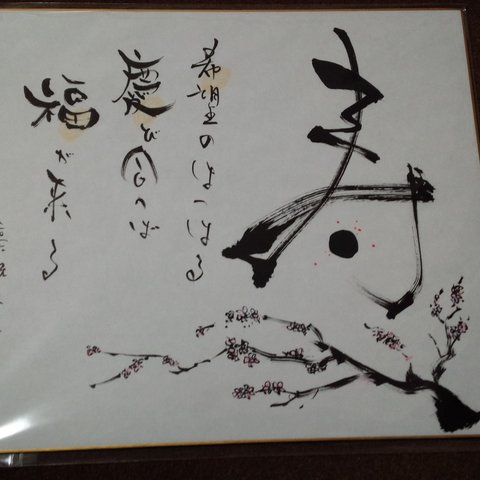 寿
希望のはつはる
慶び合へば
福が来る